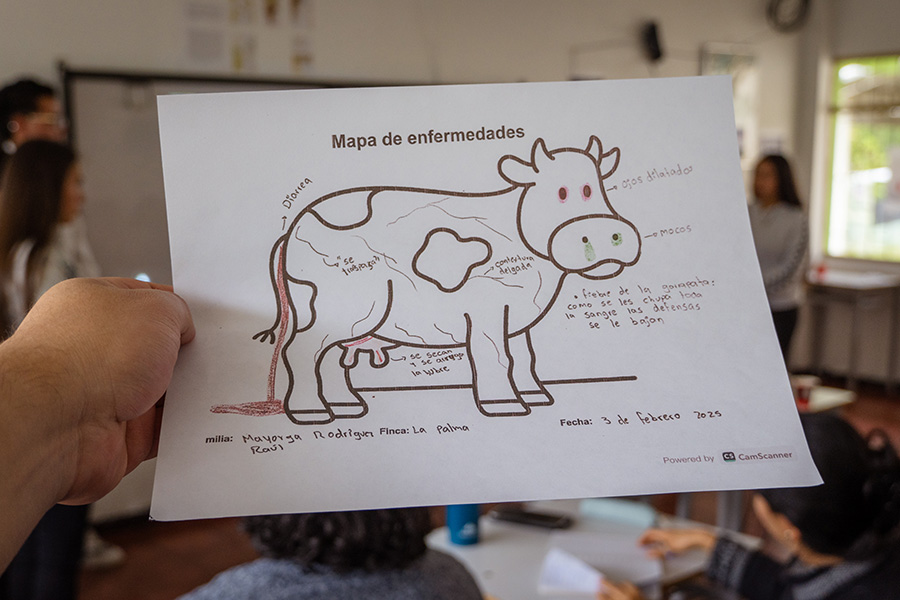 Mapa de enfermedades
Diarrea
ojos dilatados
mocos
"se
trabaja"
contextura
delgada
• fiebre de la garrapata:
como se les chupa toda
la sangre las defensas
se le bajan
se secan
y se
la ubre
milia: Mayorga Rodriguez Finca: La palma
Raúl
Fecha: 3 de febrero 2025
Powered by CS CamScanner